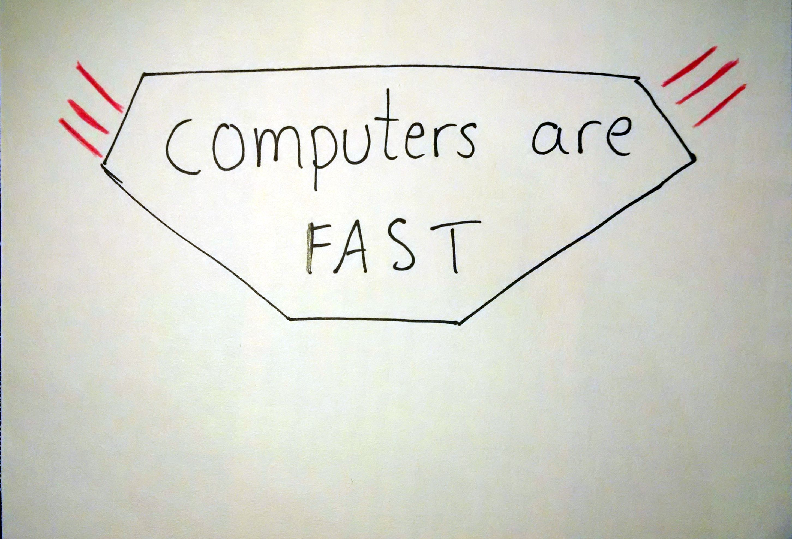 computers are
FAST